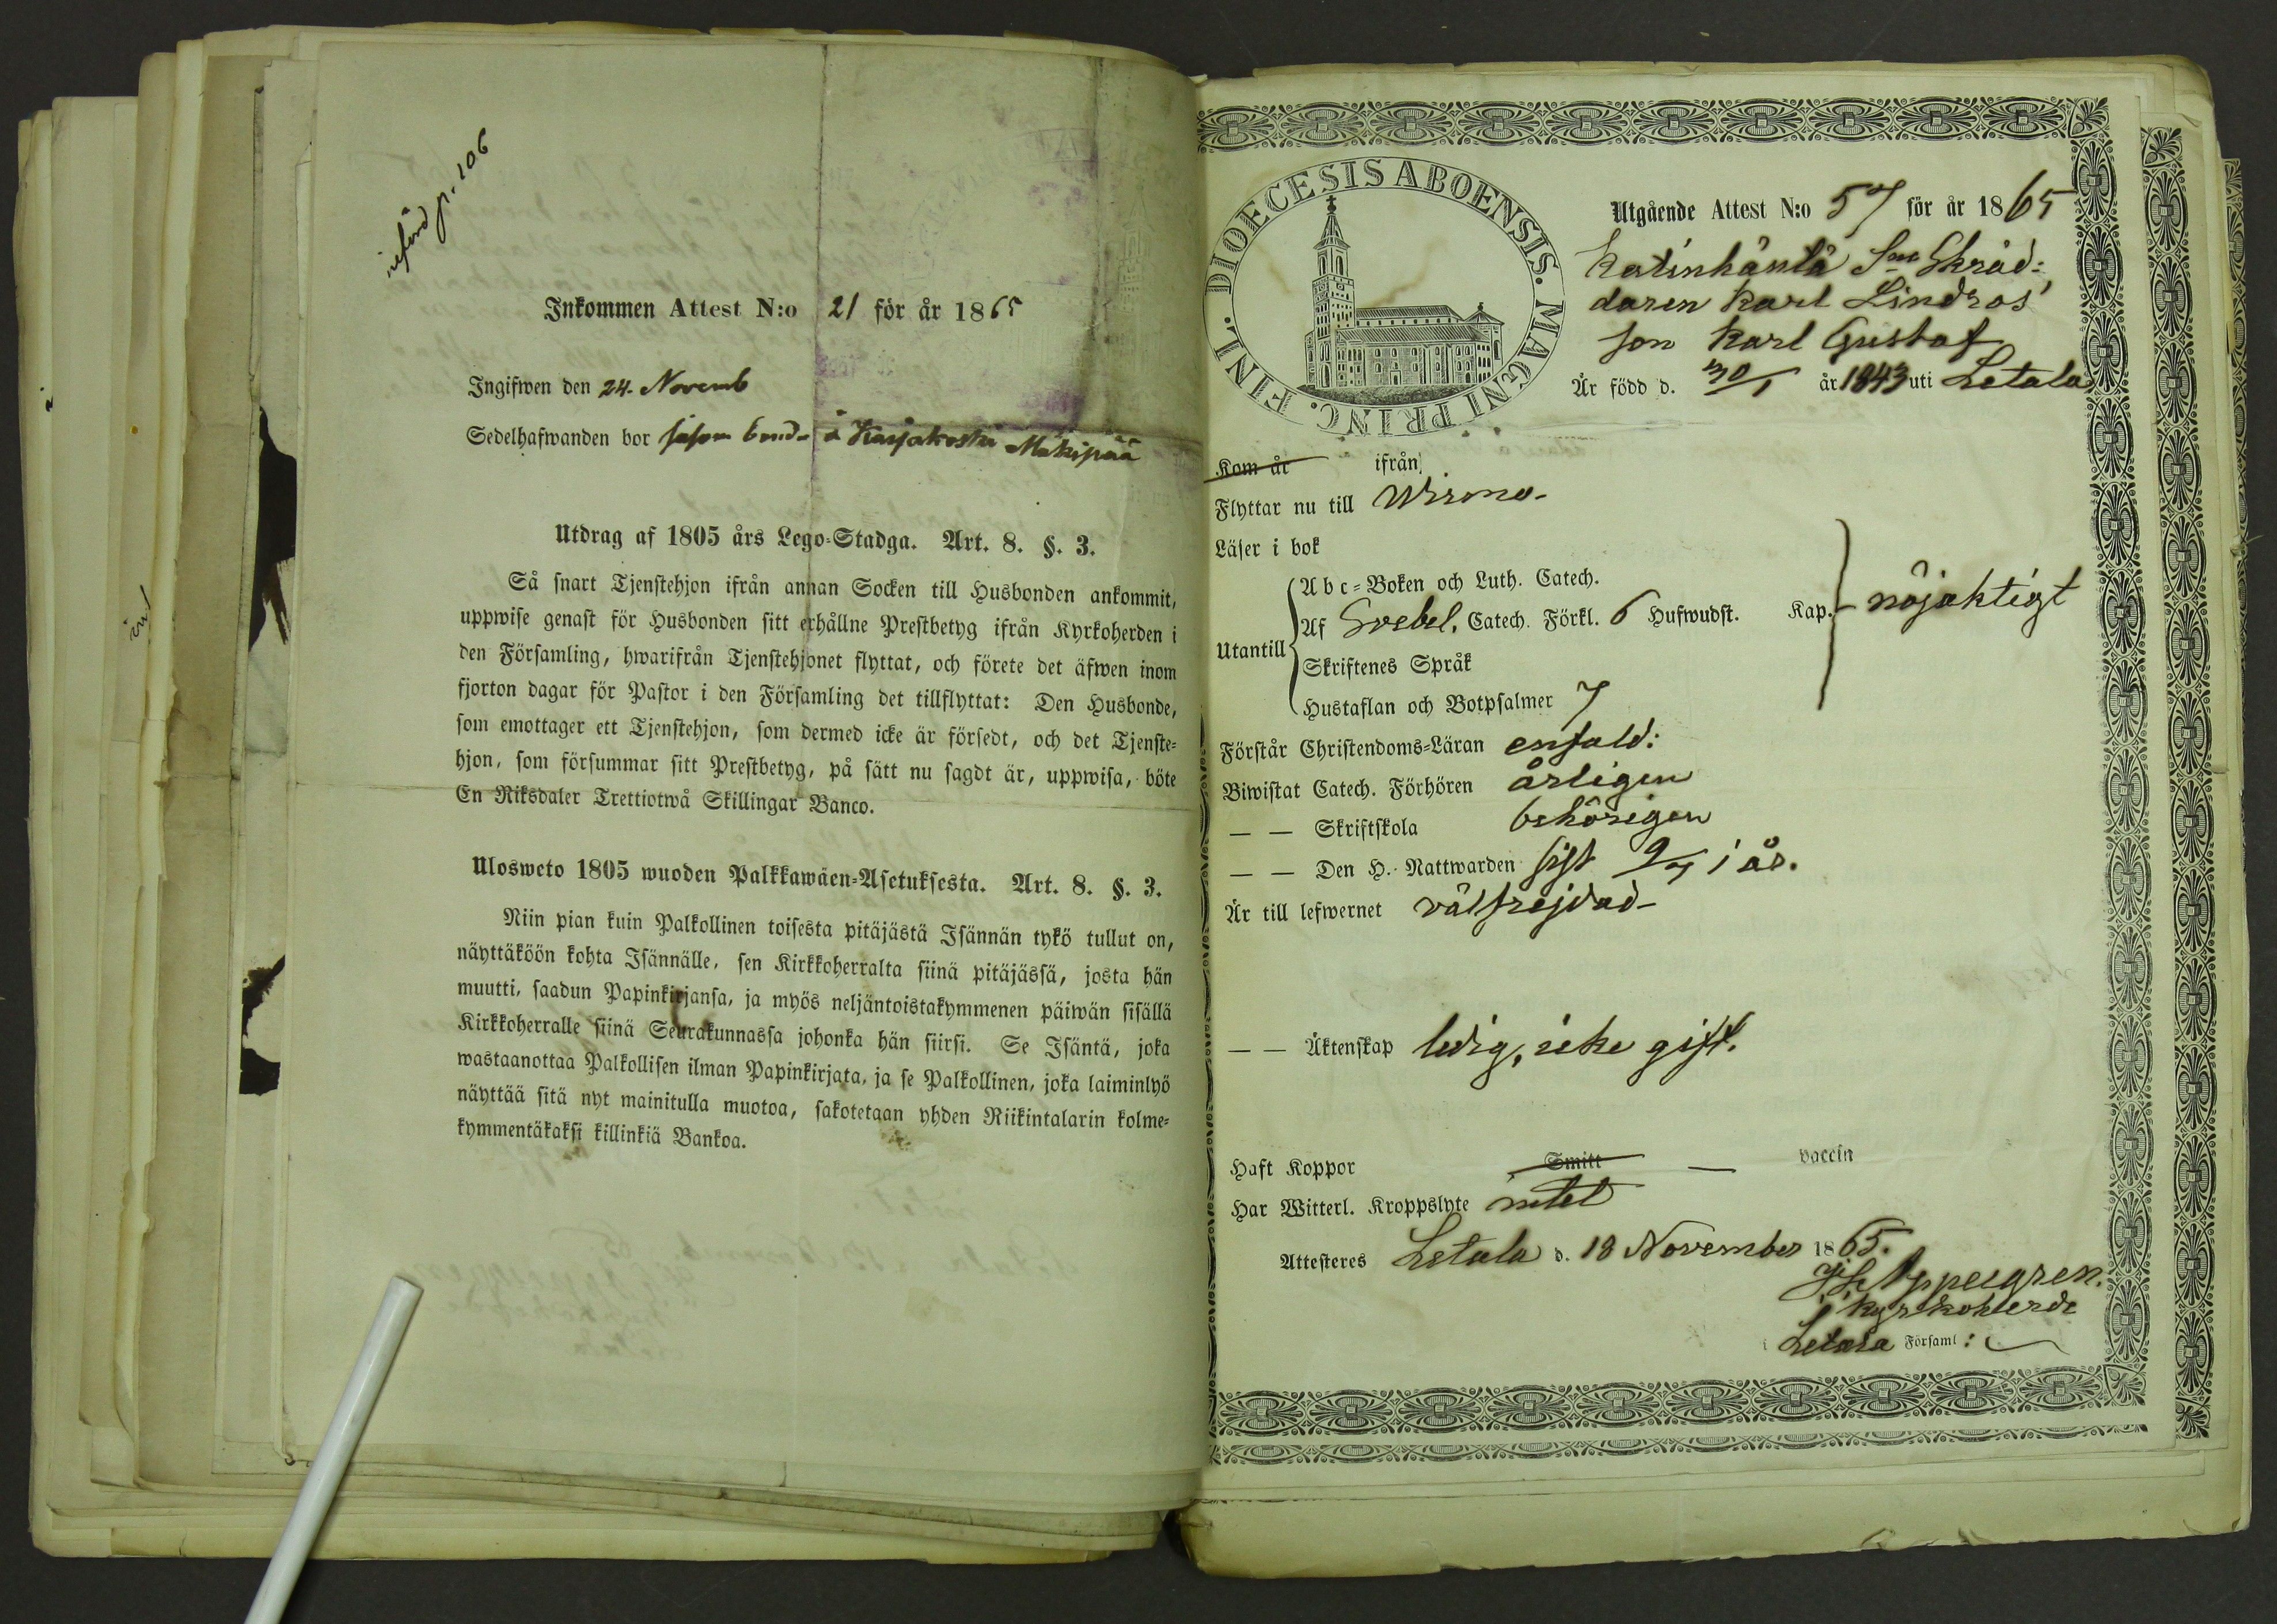 införd p. 106
Inkommen Attest N:o 21 för år 1865
Ingifwen den 24. Novemb
Sedelhafwanden bor såsom bond- å Karjakoski Mäkipää
Utdrag af 1805 års Lego-Stadga. Art. 8. §. 3.
Så snart Tjenstehjon ifrån annan Socken till Husbonden ankommit,
uppwise genast för Husbonden sitt erhållne Prestbetyg ifrån Kyrkoherden i
den Församling, hwarifrån Tjenstehjonet flyttat, och förete det äfwen inom
fjorton dagar för Pastor i den Församling det tillflyttat: Den Husbonde,
som emottager ett Tjenstehjon, som dermed icke är försedt, och det Tjenste-
hjon, som försummar sitt Prestbetyg, på sätt nu sagdt är, uppwisa, böte
En Riksdaler Trettiotwå Skillingar Banco.
Ulosweto 1805 wuoden Palkkawäen-Asetuksesta. Art. 8. §. 3.
Niin pian kuin Palkollinen toisesta pitäjästä Isännän tykö tullut on,
näyttäköön kohta Isännälle, sen Kirkkoherralta siinä pitäjässä, josta hän
muutti, saadun Papinkirjansa, ja myös neljäntoistakymmenen päiwän sisällä
Kirkkoherralle siinä Seurakunnassa johonka hän siirsi. Se Isäntä, joka
wastaanottaa Palkollisen ilman Papinkirjata, ja se Palkollinen, joka laiminlyö
näyttää sitä nyt mainitulla muotoa, sakotetaan yhden Riikintalarin kolme-
kymmentäkaksi killinkiä Bankoa.
DIOECESIS ABOENSIS. MAGNI PRINC. FINL.
Utgående Attest N:o 57 för år 1865
Katinhäntä Skräd:
daren Karl Lindros'
son Karl Gustaf
Är född d. 30/1 år 1843 uti Letala
Kom år ifrån
Flyttar nu till Wirmo-
Läser i bok
Abc-Boken och Luth. Catech.
Utantill Af Svebel. Catech. Förkl. 6 Hufwudst. Kap. nöjaktigt
Skriftenes Språk
Hustaflan och Botpsalmer 7
Förstår Christendoms-Läran enfald:
Biwistat Catech. Förhören årligen
— — Skriftskola behörigen
— — Den H. Nattwarden sist 9/7 i år.
Är till lefwernet välfrejdad-
— — Äktenskap ledig, icke gift.
Haft Koppor Smitt — vaccin
Har Witterl. Kroppslyte intet
Attesteres Letala d. 18 November 1865.
Appelgren.
Kyrkoherde
i Letala Församl: